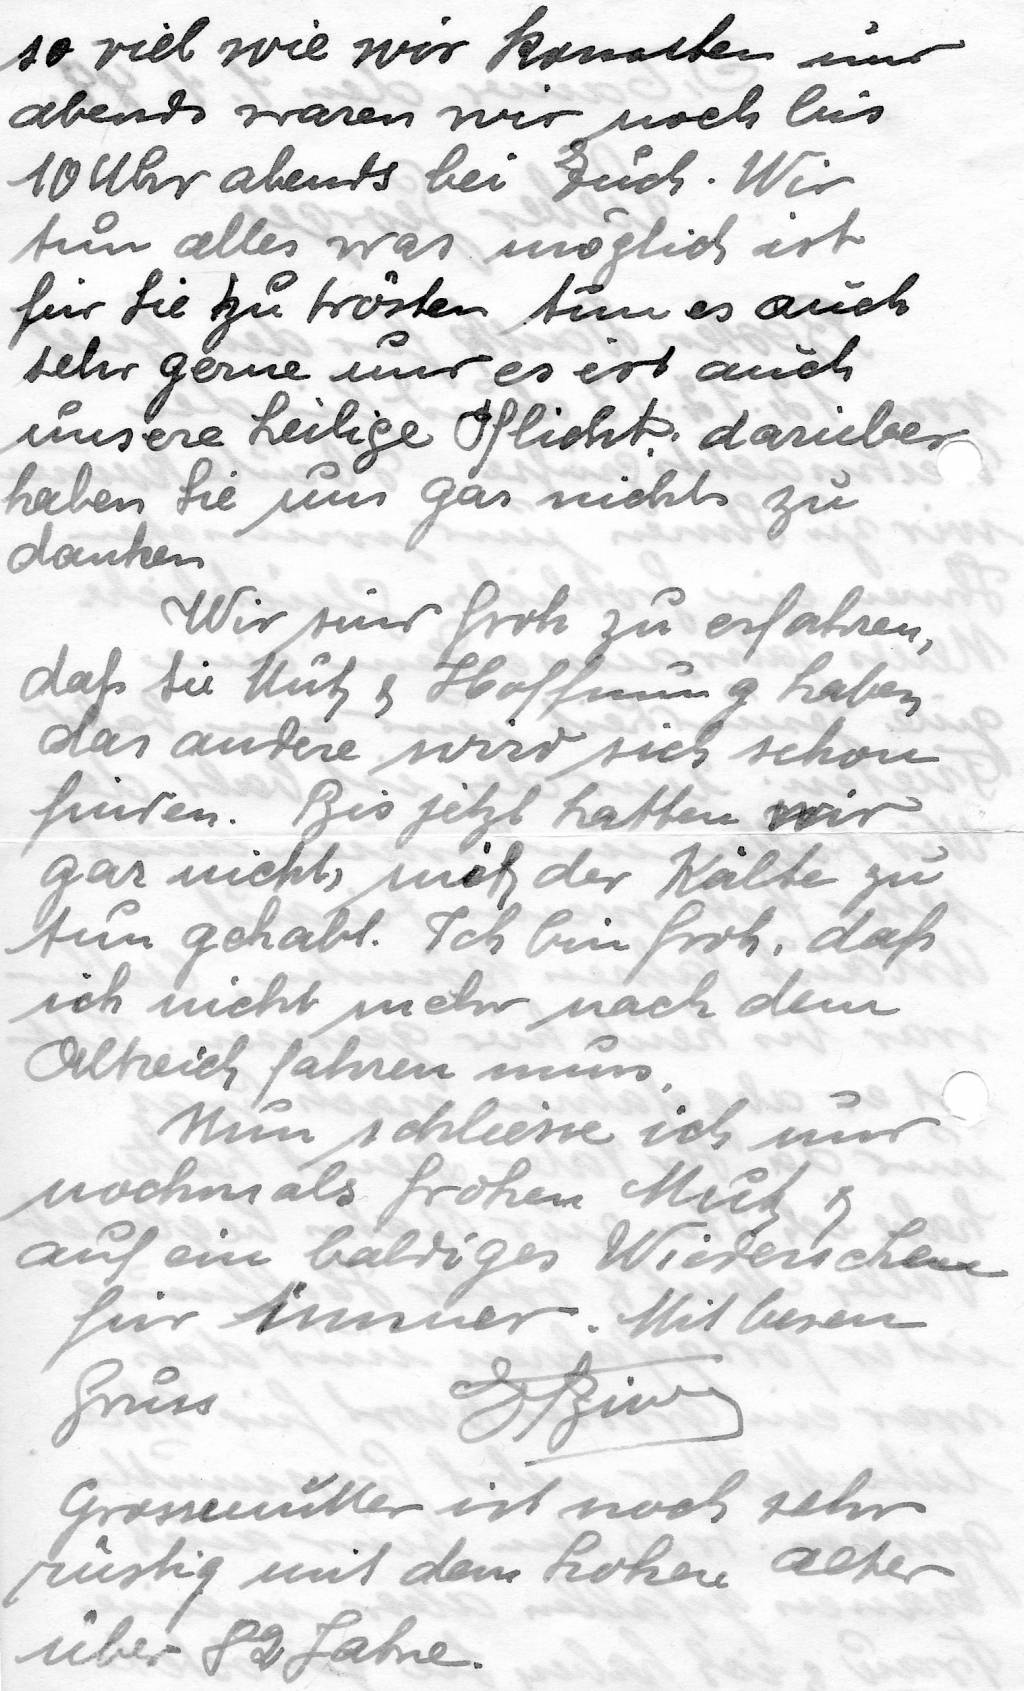 so viel wie wir konnten und
abends waren wir noch bis
10 Uhr abends bei Züch. Wir
tun alles was möglich ist
für Sie zu trösten tun es auch
sehr gerne und es ist auch
unsere heilige Pflicht. darüber
haben Sie uns gar nichts zu
danken
Wir sind froh zu erfahren,
daß Sie Mut & Hoffnung haben
das andere wird sich schon
finden. Bis jetzt hatten wir
gar nichts mit der Kälte zu
tun gehabt. Ich bin froh, daß
ich nicht mehr nach dem
Altreich fahren muss.
Nun schliesse ich und
nochmals frohen Mut &
auf ein baldiges Wiedersehen
für immer. Mit besen
Gruss
Grossemutter ist noch sehr
rüstig mit dem hohen alter
über 82 Jahre.